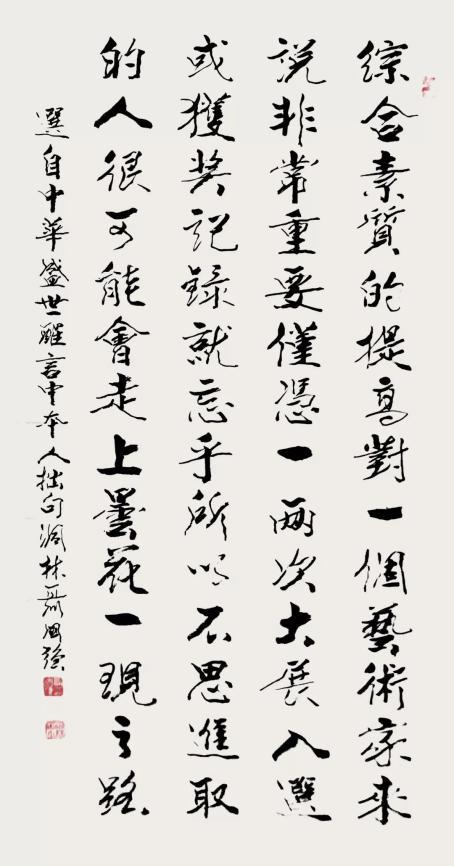 綜合素質的提高對一個藝術家來
説非常重要僅憑一兩次大展入選
或獲奬記録就忘乎所以不思進取
的人很可能會走上曇花一現之路
選自中華盛世醒言中本人拙句 林聶